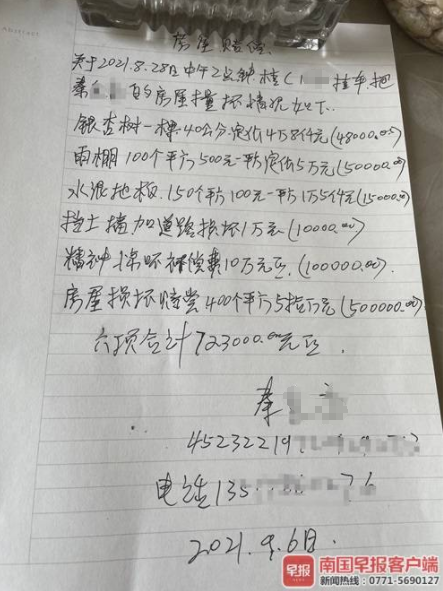 房屋赔偿
关于2021.8.28日中午2点钟桂C 1 挂车.把
秦 的房屋撞坏情况如下.
银杏树一棵40公分定价4万8仟元(48000.00)
雨棚100个平方500元一平方定价5万元(50000.00)
水泥地板.150个平方100元一平方1万5仟元(15000.00)
挡土墙加道路损坏1万元(10000.00)
精神 补偿费10万元正.(100000.00).
房屋损坏赔尝400个平方5拾万元(500000.00)
六项合计723000.00元正.
秦
45232219
电话135
2021.9.6日.
早报 南国早报客户端
新闻热线:0771-5690127